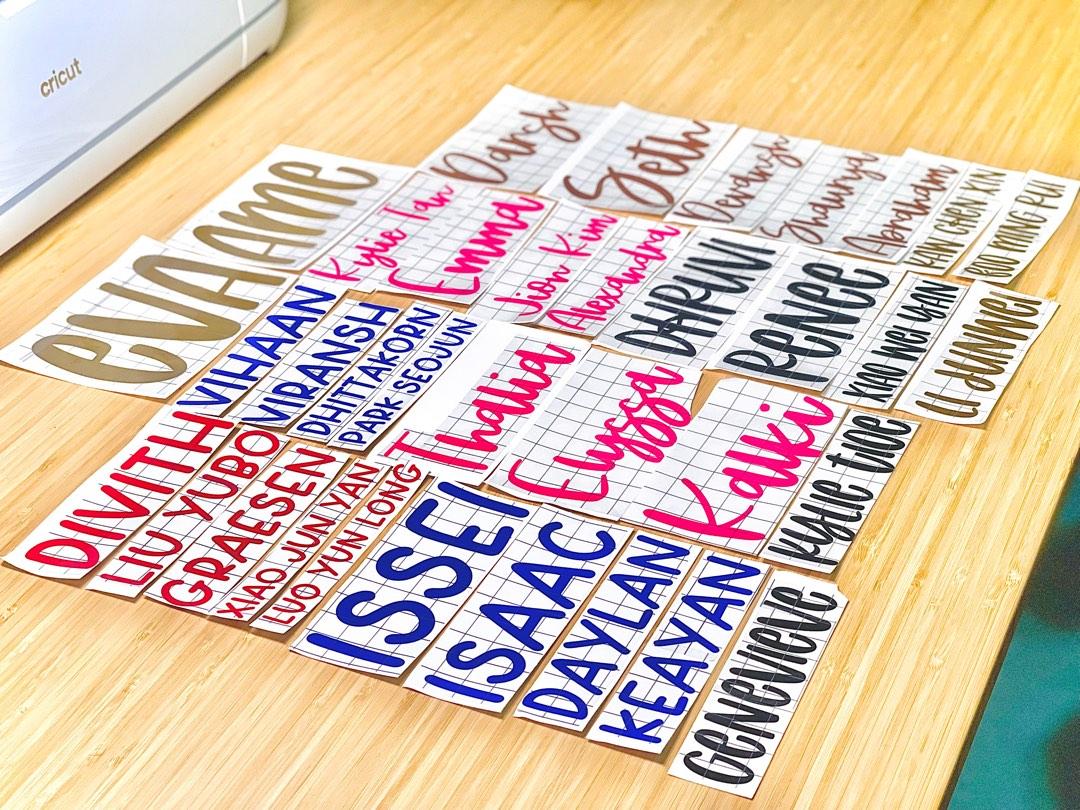 cricut
Darsh
Seth
Devansh
Shaurya
Abraham
KAN CHEN XIN
KOO MING PUI
eVAAME
Kylie Tan
Emma
Jion Kim
Alexandra
DHRUVI
RENEE
XIAO WEI YUAN
LI JUNWEI
VIHAAN
VIRANSH
DHITTAKORN
PARK SEOJUN
Thalia
Elyssa
Kaiki
KYLIE TIOE
DIVITH
LIU YUBO
GRAESEN
XIAO JUN YAN
LUO YUN LONG
ISSEI
ISAAC
DAYLAN
KEAYAN
GENEVIEVE